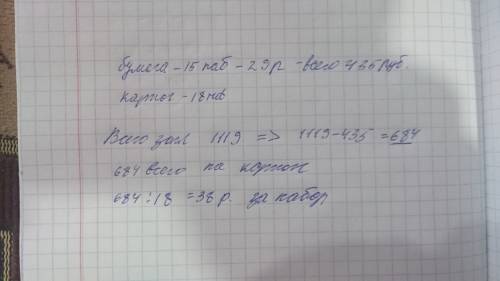 бумага - 15 наб - 29 р - всего 435 руб.
картон - 18 наб
Всего зап 1119 => 1119-435 = 684
684 всего на картон
684 : 18 = 38 р. за набор